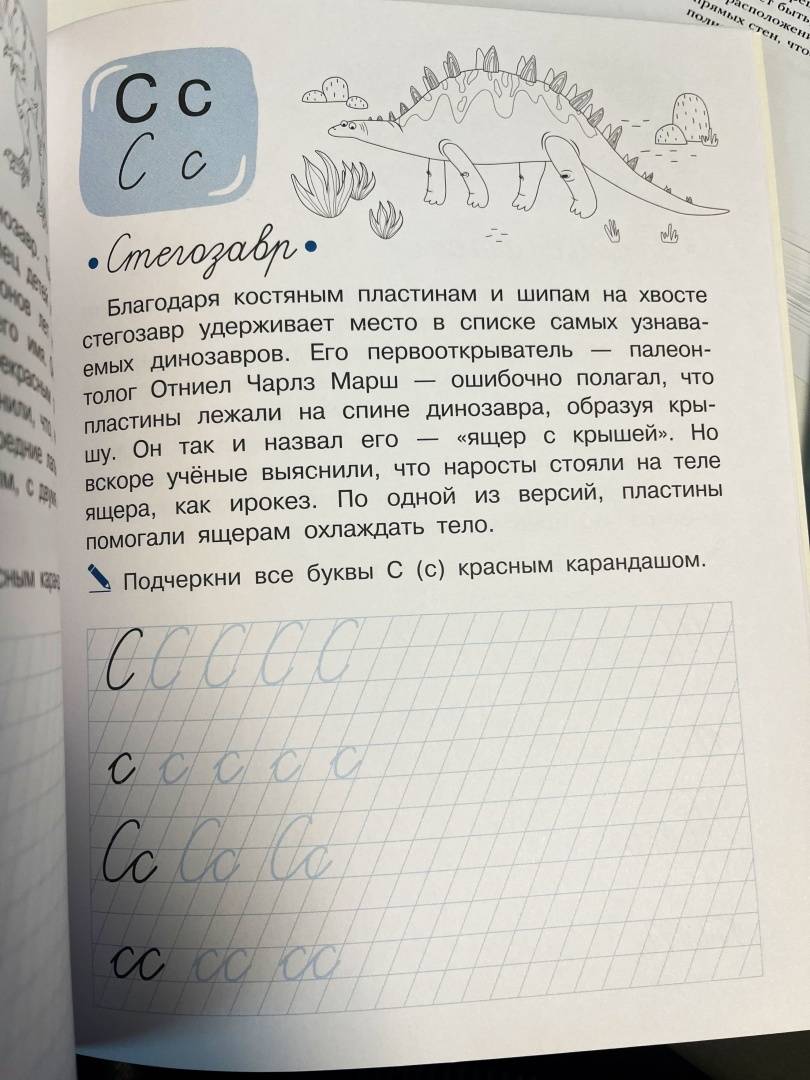 С с
С с
• Стегозавр •
Благодаря костяным пластинам и шипам на хвосте
стегозавр удерживает место в списке самых узнава-
емых динозавров. Его первооткрыватель — палеон-
толог Отниел Чарлз Марш — ошибочно полагал, что
пластины лежали на спине динозавра, образуя кры-
шу. Он так и назвал его — «ящер с крышей». Но
вскоре учёные выяснили, что наросты стояли на теле
ящера, как ирокез. По одной из версий, пластины
помогали ящерам охлаждать тело.
Подчеркни все буквы С (с) красным карандашом.
С С С С С
с с с с с
Сс Сс Сс
сс сс сс
быть
расположени
прямых стен, что